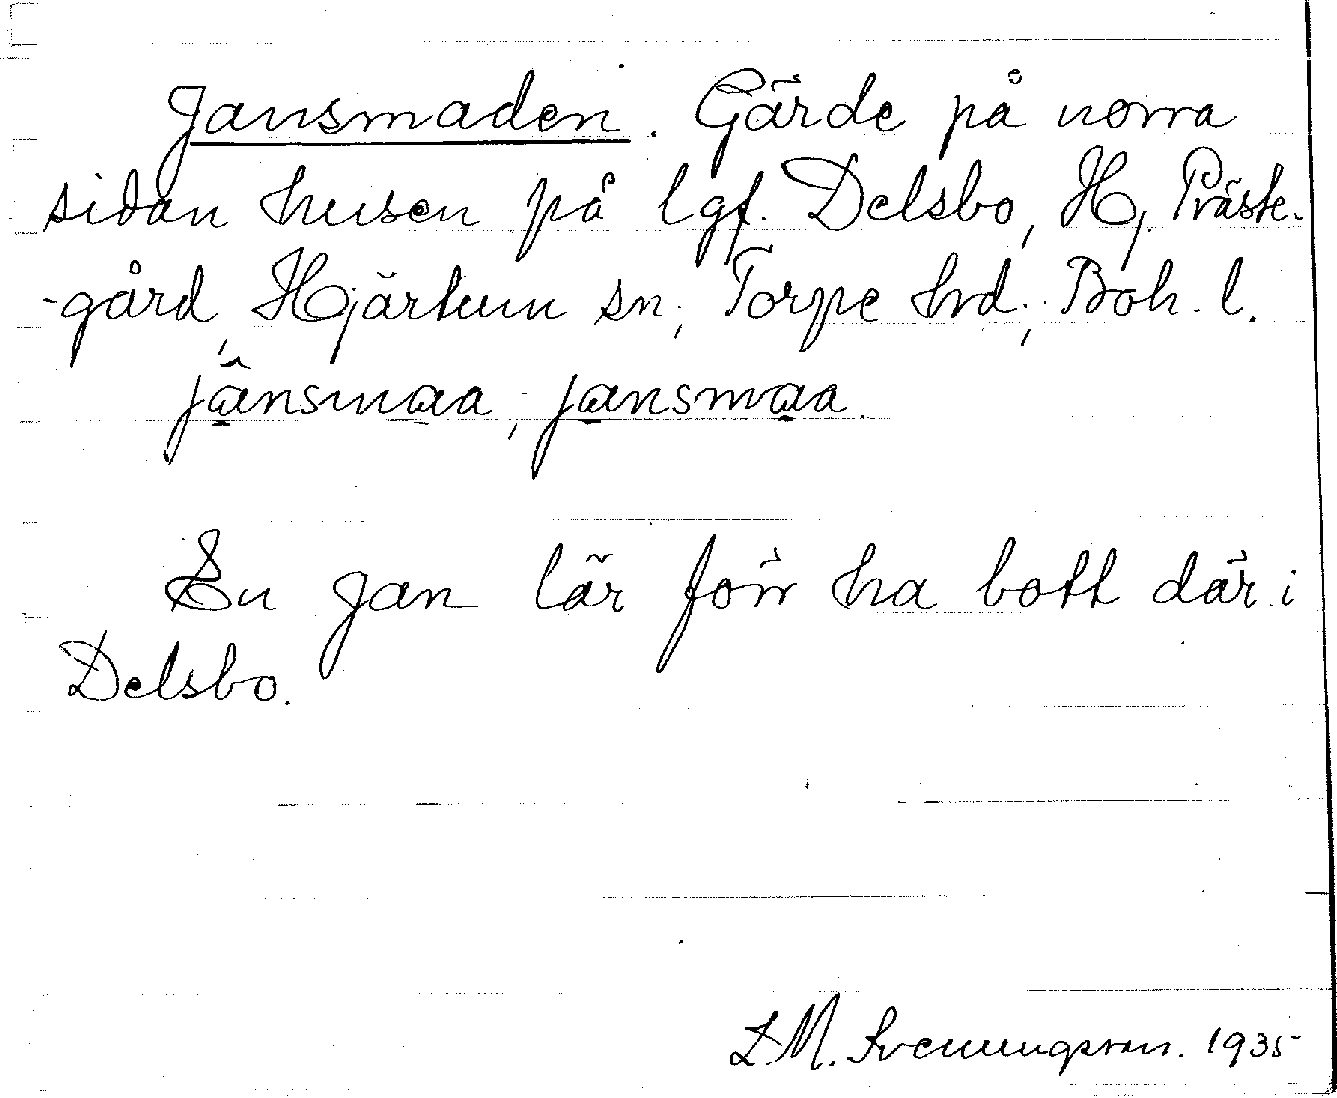 Jansmaden. Gärde på norra
sidan husen på lgf. Delsbo, Hj. Präste-
-gård, Hjärtum sn, Torpe hrd; Boh. l.
jânsmaa, jansmaa.
En Jan lär förr ha bott där i
Delsbo.
L M. Svenungsson. 1935